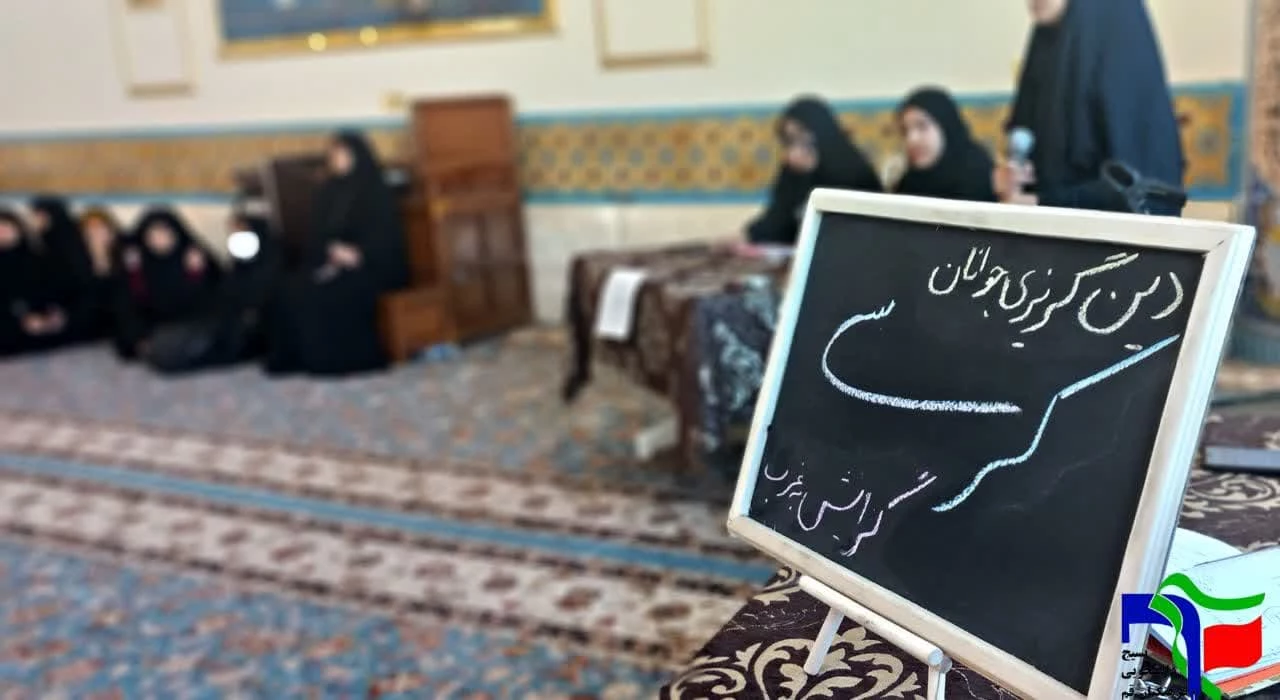 دین گریزی جوانان
کرسی
گرایش به غرب